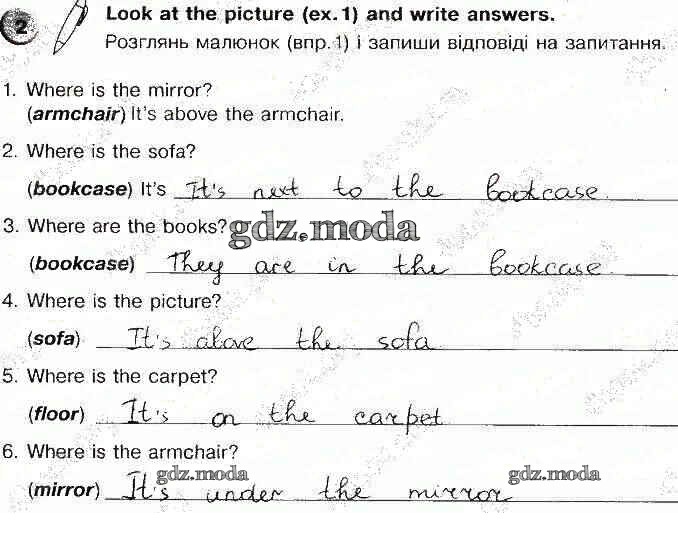 2 Look at the picture (ex. 1) and write answers.
Розглянь малюнок (впр. 1) і запиши відповіді на запитання.
1. Where is the mirror?
(armchair) It's above the armchair.
2. Where is the sofa?
(bookcase) It's It's next to the bookcase.
3. Where are the books? gdz.moda
(bookcase) They are in the bookcase.
4. Where is the picture?
(sofa) It's above the sofa
5. Where is the carpet?
(floor) It's on the carpet
6. Where is the armchair?
gdz.moda gdz.moda
(mirror) It's under the mirror